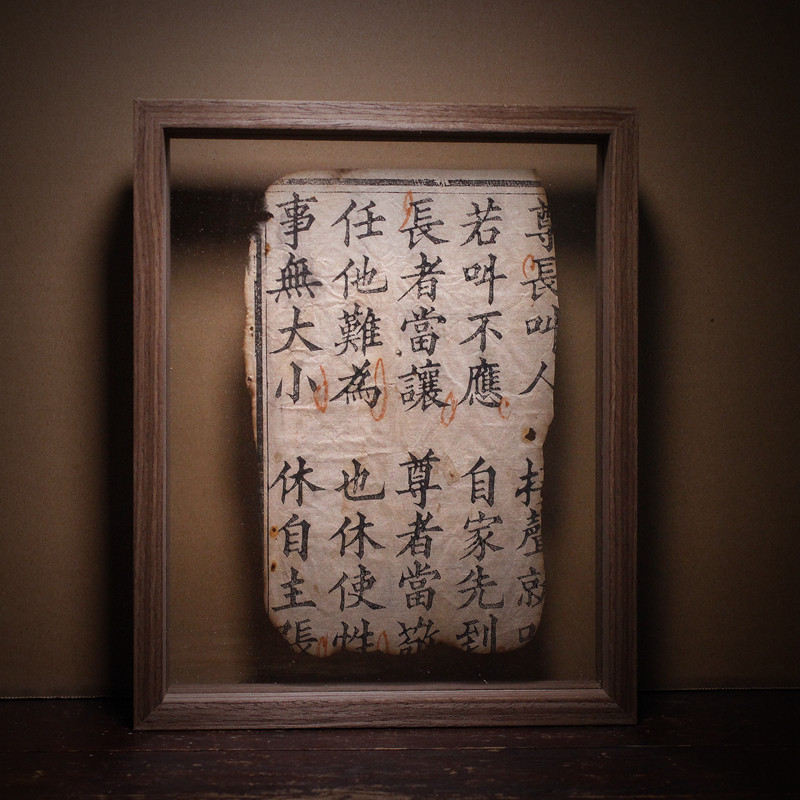 尊長叫人 聲就
若叫不應 自家先到
長者當讓 尊者當敬
任他難為 也休使性
事無大小 休自主張